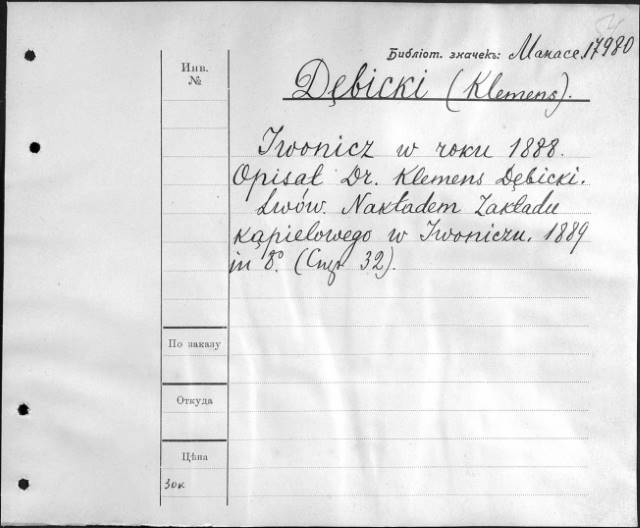 Библіот. значекъ: Манасе.17980
Инв.
№
Dębicki (Klemens).
Iwonicz w roku 1888.
Opisał Dr. Klemens Dębicki.
Lwów. Nakładem Zakładu
kąpielowego w Iwoniczu. 1889
in 8º. (Стр 32).
По заказу
Откуда
Цѣна
30к